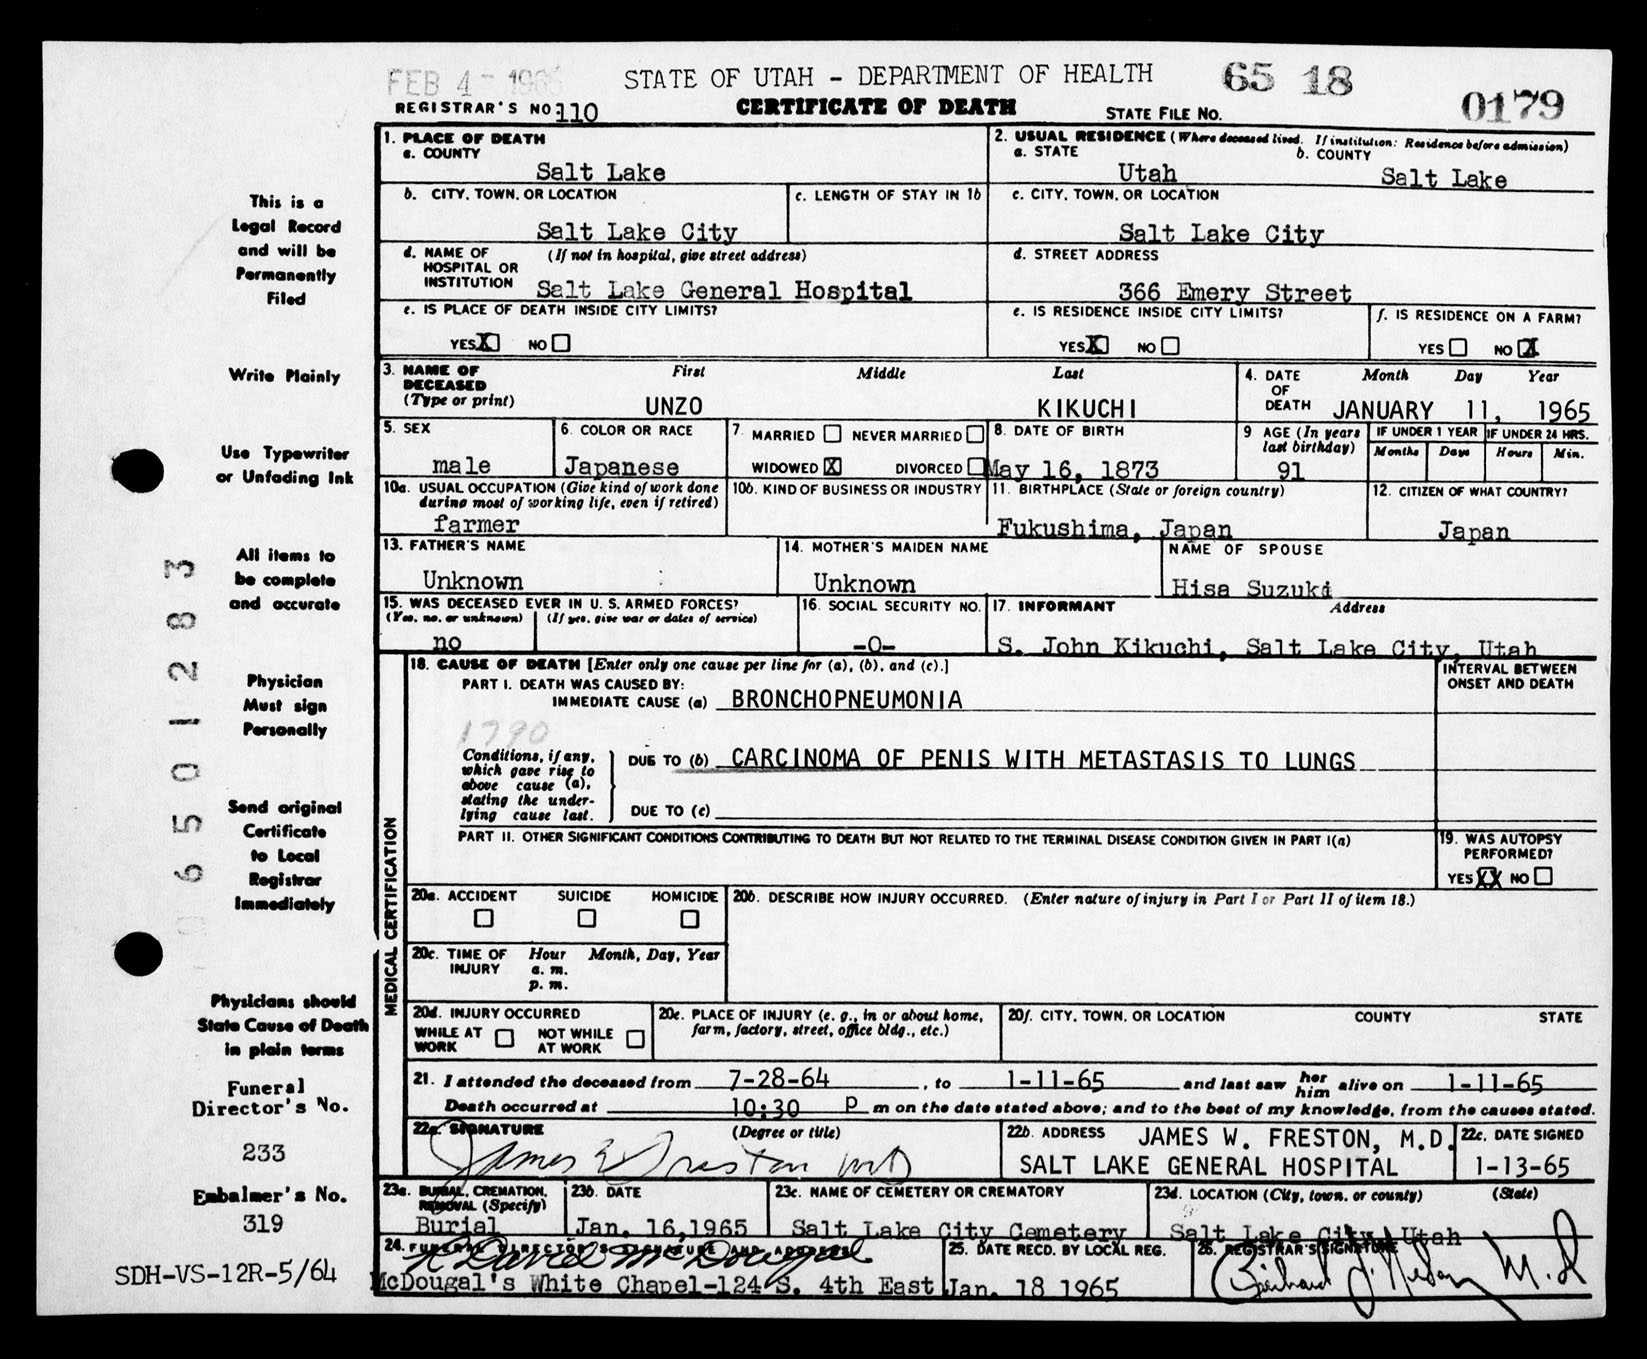 FEB 4 - 1965
STATE OF UTAH - DEPARTMENT OF HEALTH
65 18
0179
REGISTRAR'S NO. 110
CERTIFICATE OF DEATH
STATE FILE NO.
1. PLACE OF DEATH
a. COUNTY
Salt Lake
2. USUAL RESIDENCE (Where deceased lived. If institution: Residence before admission)
a. STATE
b. COUNTY
Utah
Salt Lake
b. CITY, TOWN, OR LOCATION
Salt Lake City
c. LENGTH OF STAY IN 1b
c. CITY, TOWN, OR LOCATION
Salt Lake City
d. NAME OF HOSPITAL OR INSTITUTION
(If not in hospital, give street address)
Salt Lake General Hospital
d. STREET ADDRESS
366 Emery Street
e. IS PLACE OF DEATH INSIDE CITY LIMITS?
YES X NO
e. IS RESIDENCE INSIDE CITY LIMITS?
YES X NO
f. IS RESIDENCE ON A FARM?
YES NO X
3. NAME OF DECEASED
(Type or print)
First
Middle
Last
UNZO
KIKUCHI
4. DATE OF DEATH
Month Day Year
JANUARY 11, 1965
5. SEX
male
6. COLOR OR RACE
Japanese
7. MARRIED NEVER MARRIED
WIDOWED X DIVORCED
8. DATE OF BIRTH
May 16, 1873
9 AGE (In years last birthday)
91
IF UNDER 1 YEAR
Months Days
IF UNDER 24 HRS.
Hours Min.
10a. USUAL OCCUPATION (Give kind of work done during most of working life, even if retired)
farmer
10b. KIND OF BUSINESS OR INDUSTRY
11. BIRTHPLACE (State or foreign country)
Fukushima, Japan
12. CITIZEN OF WHAT COUNTRY?
Japan
13. FATHER'S NAME
Unknown
14. MOTHER'S MAIDEN NAME
Unknown
NAME OF SPOUSE
Hisa Suzuki
15. WAS DECEASED EVER IN U. S. ARMED FORCES?
(Yes, no, or unknown)
(If yes, give war or dates of service)
no
16. SOCIAL SECURITY NO.
-0-
17. INFORMANT
Address
S. John Kikuchi, Salt Lake City, Utah
MEDICAL CERTIFICATION
18. CAUSE OF DEATH [Enter only one cause per line for (a), (b), and (c).]
PART I. DEATH WAS CAUSED BY:
IMMEDIATE CAUSE (a) BRONCHOPNEUMONIA
INTERVAL BETWEEN ONSET AND DEATH
1790
Conditions, if any, which gave rise to above cause (a), stating the underlying cause last.
DUE TO (b) CARCINOMA OF PENIS WITH METASTASIS TO LUNGS
DUE TO (c)
PART II. OTHER SIGNIFICANT CONDITIONS CONTRIBUTING TO DEATH BUT NOT RELATED TO THE TERMINAL DISEASE CONDITION GIVEN IN PART I(a)
19. WAS AUTOPSY PERFORMED?
YES XX NO
20a. ACCIDENT SUICIDE HOMICIDE
20b. DESCRIBE HOW INJURY OCCURRED. (Enter nature of injury in Part I or Part II of item 18.)
20c. TIME OF INJURY
Hour Month, Day, Year
a. m.
p. m.
20d. INJURY OCCURRED
WHILE AT WORK NOT WHILE AT WORK
20e. PLACE OF INJURY (e. g., in or about home, farm, factory, street, office bldg., etc.)
20f. CITY, TOWN, OR LOCATION COUNTY STATE
21. I attended the deceased from 7-28-64, to 1-11-65 and last saw her him alive on 1-11-65
Death occurred at 10:30 P m on the date stated above; and to the best of my knowledge, from the causes stated.
22a. SIGNATURE
(Degree or title)
James W Freston MD
22b. ADDRESS JAMES W. FRESTON, M.D.
SALT LAKE GENERAL HOSPITAL
22c. DATE SIGNED
1-13-65
23a. BURIAL, CREMATION, REMOVAL (Specify)
Burial
23b. DATE
Jan. 16,1965
23c. NAME OF CEMETERY OR CREMATORY
Salt Lake City Cemetery
23d. LOCATION (City, town, or county) (State)
Salt Lake City, Utah
24. FUNERAL DIRECTOR'S SIGNATURE AND ADDRESS
David McDougal
McDougal's White Chapel-124 S. 4th East
25. DATE RECD. BY LOCAL REG.
Jan. 18 1965
26. REGISTRAR'S SIGNATURE
M.D
This is a
Legal Record
and will be
Permanently
Filed
Write Plainly
Use Typewriter
or Unfading Ink
All items to
be complete
and accurate
Physician
Must sign
Personally
Send original
Certificate
to Local
Registrar
Immediately
Physicians should
State Cause of Death
in plain terms
Funeral
Director's No.
233
Embalmer's No.
319
SDH-VS-12R-5/64
0 6 5 0 1 2 8 3